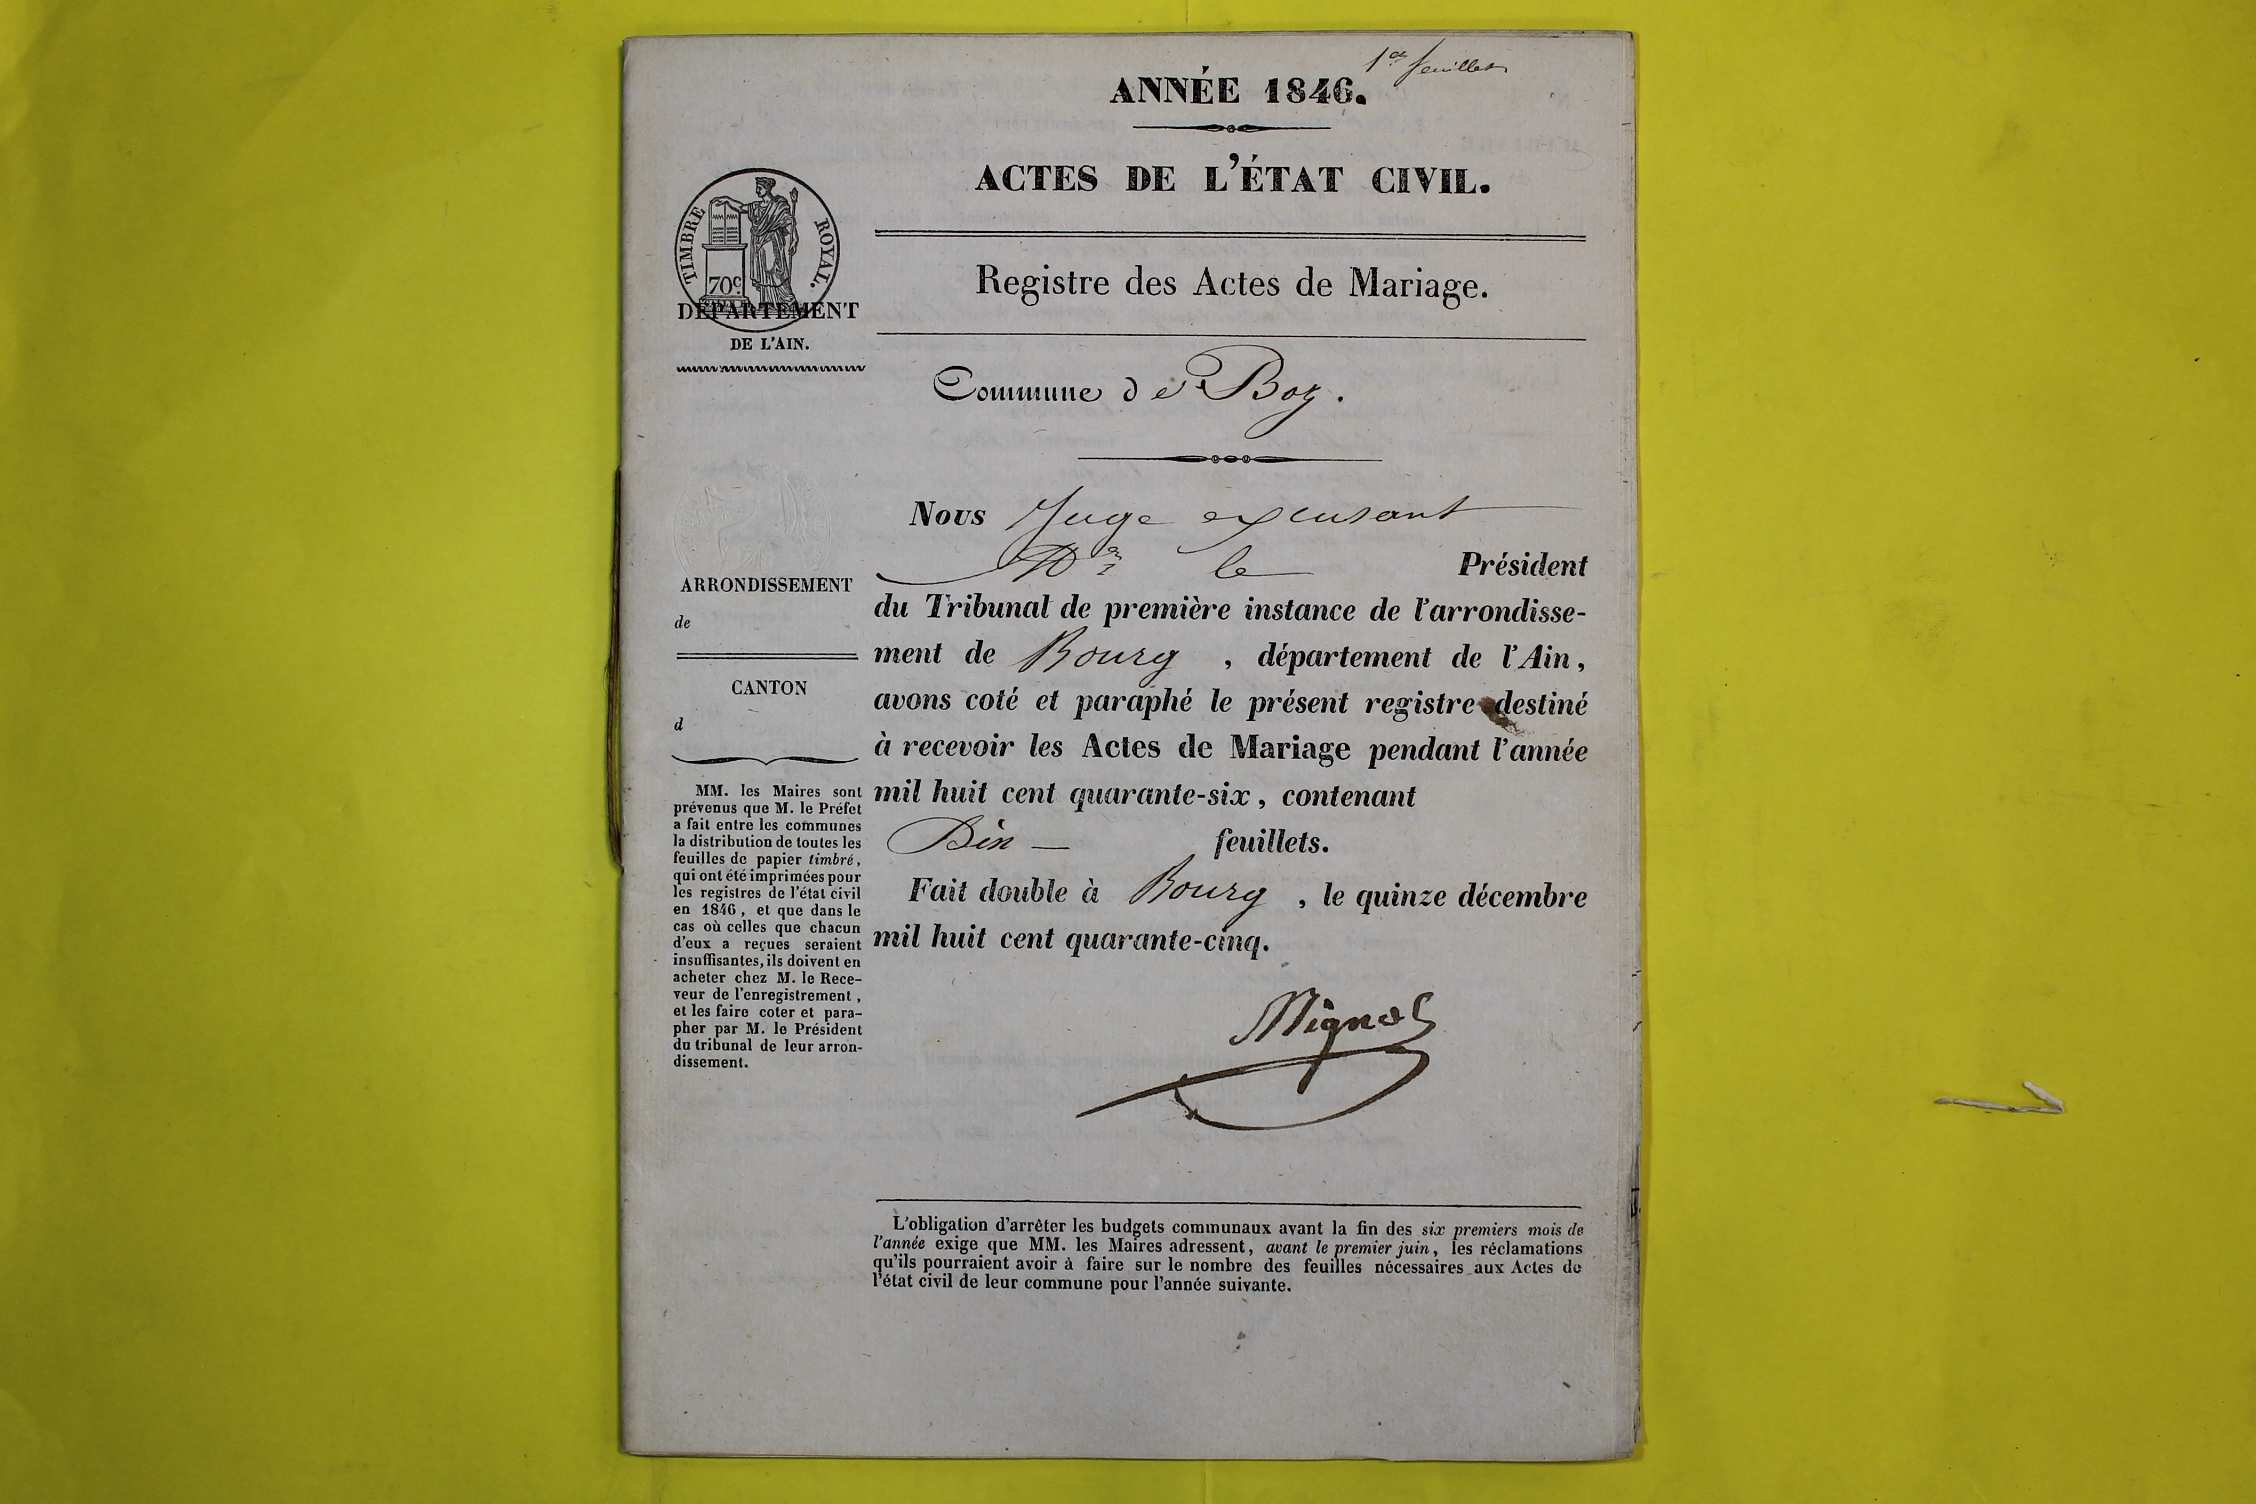 1er feuillet
ANNÉE 1846.
ACTES DE L'ÉTAT CIVIL.
TIMBRE ROYAL.
70c.
DÉPARTEMENT
DE L'AIN.
Registre des Actes de Mariage.
Commune de Boz.
Nous Juge excusant
Mr le Président
du Tribunal de première instance de l'arrondisse-
ment de Bourg, département de l'Ain,
avons coté et paraphé le présent registre destiné
à recevoir les Actes de Mariage pendant l'année
mil huit cent quarante-six, contenant
Dix feuillets.
Fait double à Bourg, le quinze décembre
mil huit cent quarante-cinq.
Mignot
ARRONDISSEMENT
de
CANTON
d
MM. les Maires sont
prévenus que M. le Préfet
a fait entre les communes
la distribution de toutes les
feuilles de papier timbré,
qui ont été imprimées pour
les registres de l'état civil
en 1846, et que dans le
cas où celles que chacun
d'eux a reçues seraient
insuffisantes, ils doivent en
acheter chez M. le Rece-
veur de l'enregistrement,
et les faire coter et para-
pher par M. le Président
du tribunal de leur arron-
dissement.
L'obligation d'arrêter les budgets communaux avant la fin des six premiers mois de
l'année exige que MM. les Maires adressent, avant le premier juin, les réclamations
qu'ils pourraient avoir à faire sur le nombre des feuilles nécessaires aux Actes de
l'état civil de leur commune pour l'année suivante.